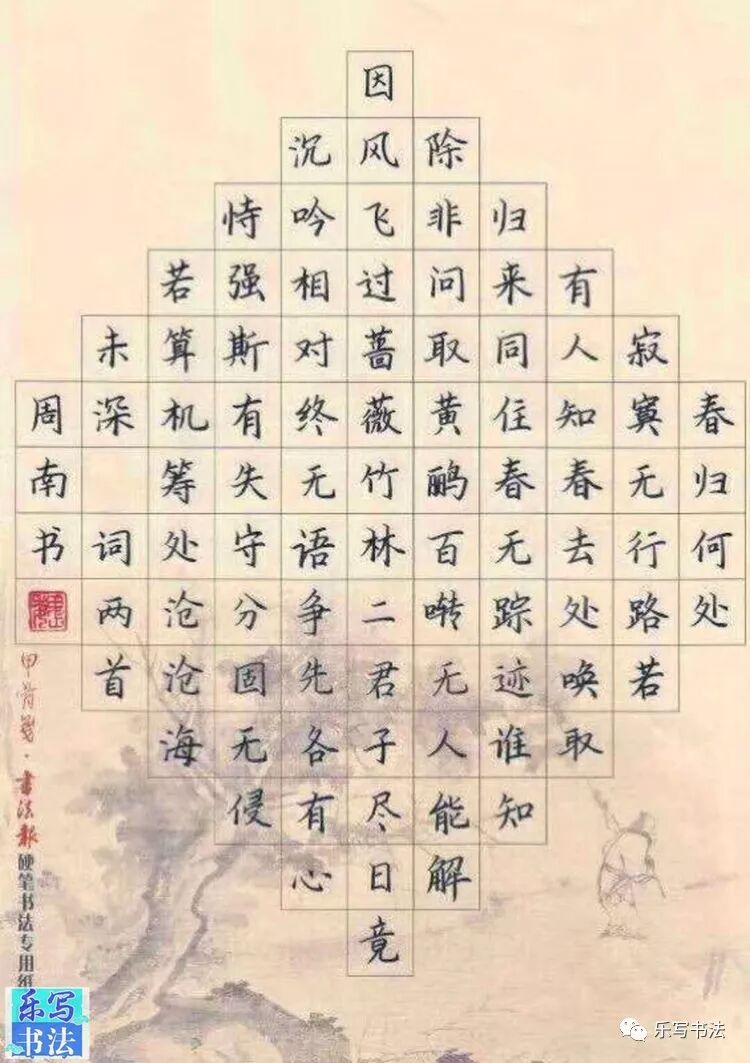 春归何处
寂寞无行路若
有人知春去处唤取
归来同住春无踪迹谁知
除非问取黄鹂百啭无人能解
因风飞过蔷薇竹林二君子尽日竟
沉吟相对终无语争先各有心
恃强斯有失守分固无侵
若算机筹处沧沧海
未深 词两首
周南书
甲骨笺·書法報硬笔书法专用纸
乐写书法
乐写书法